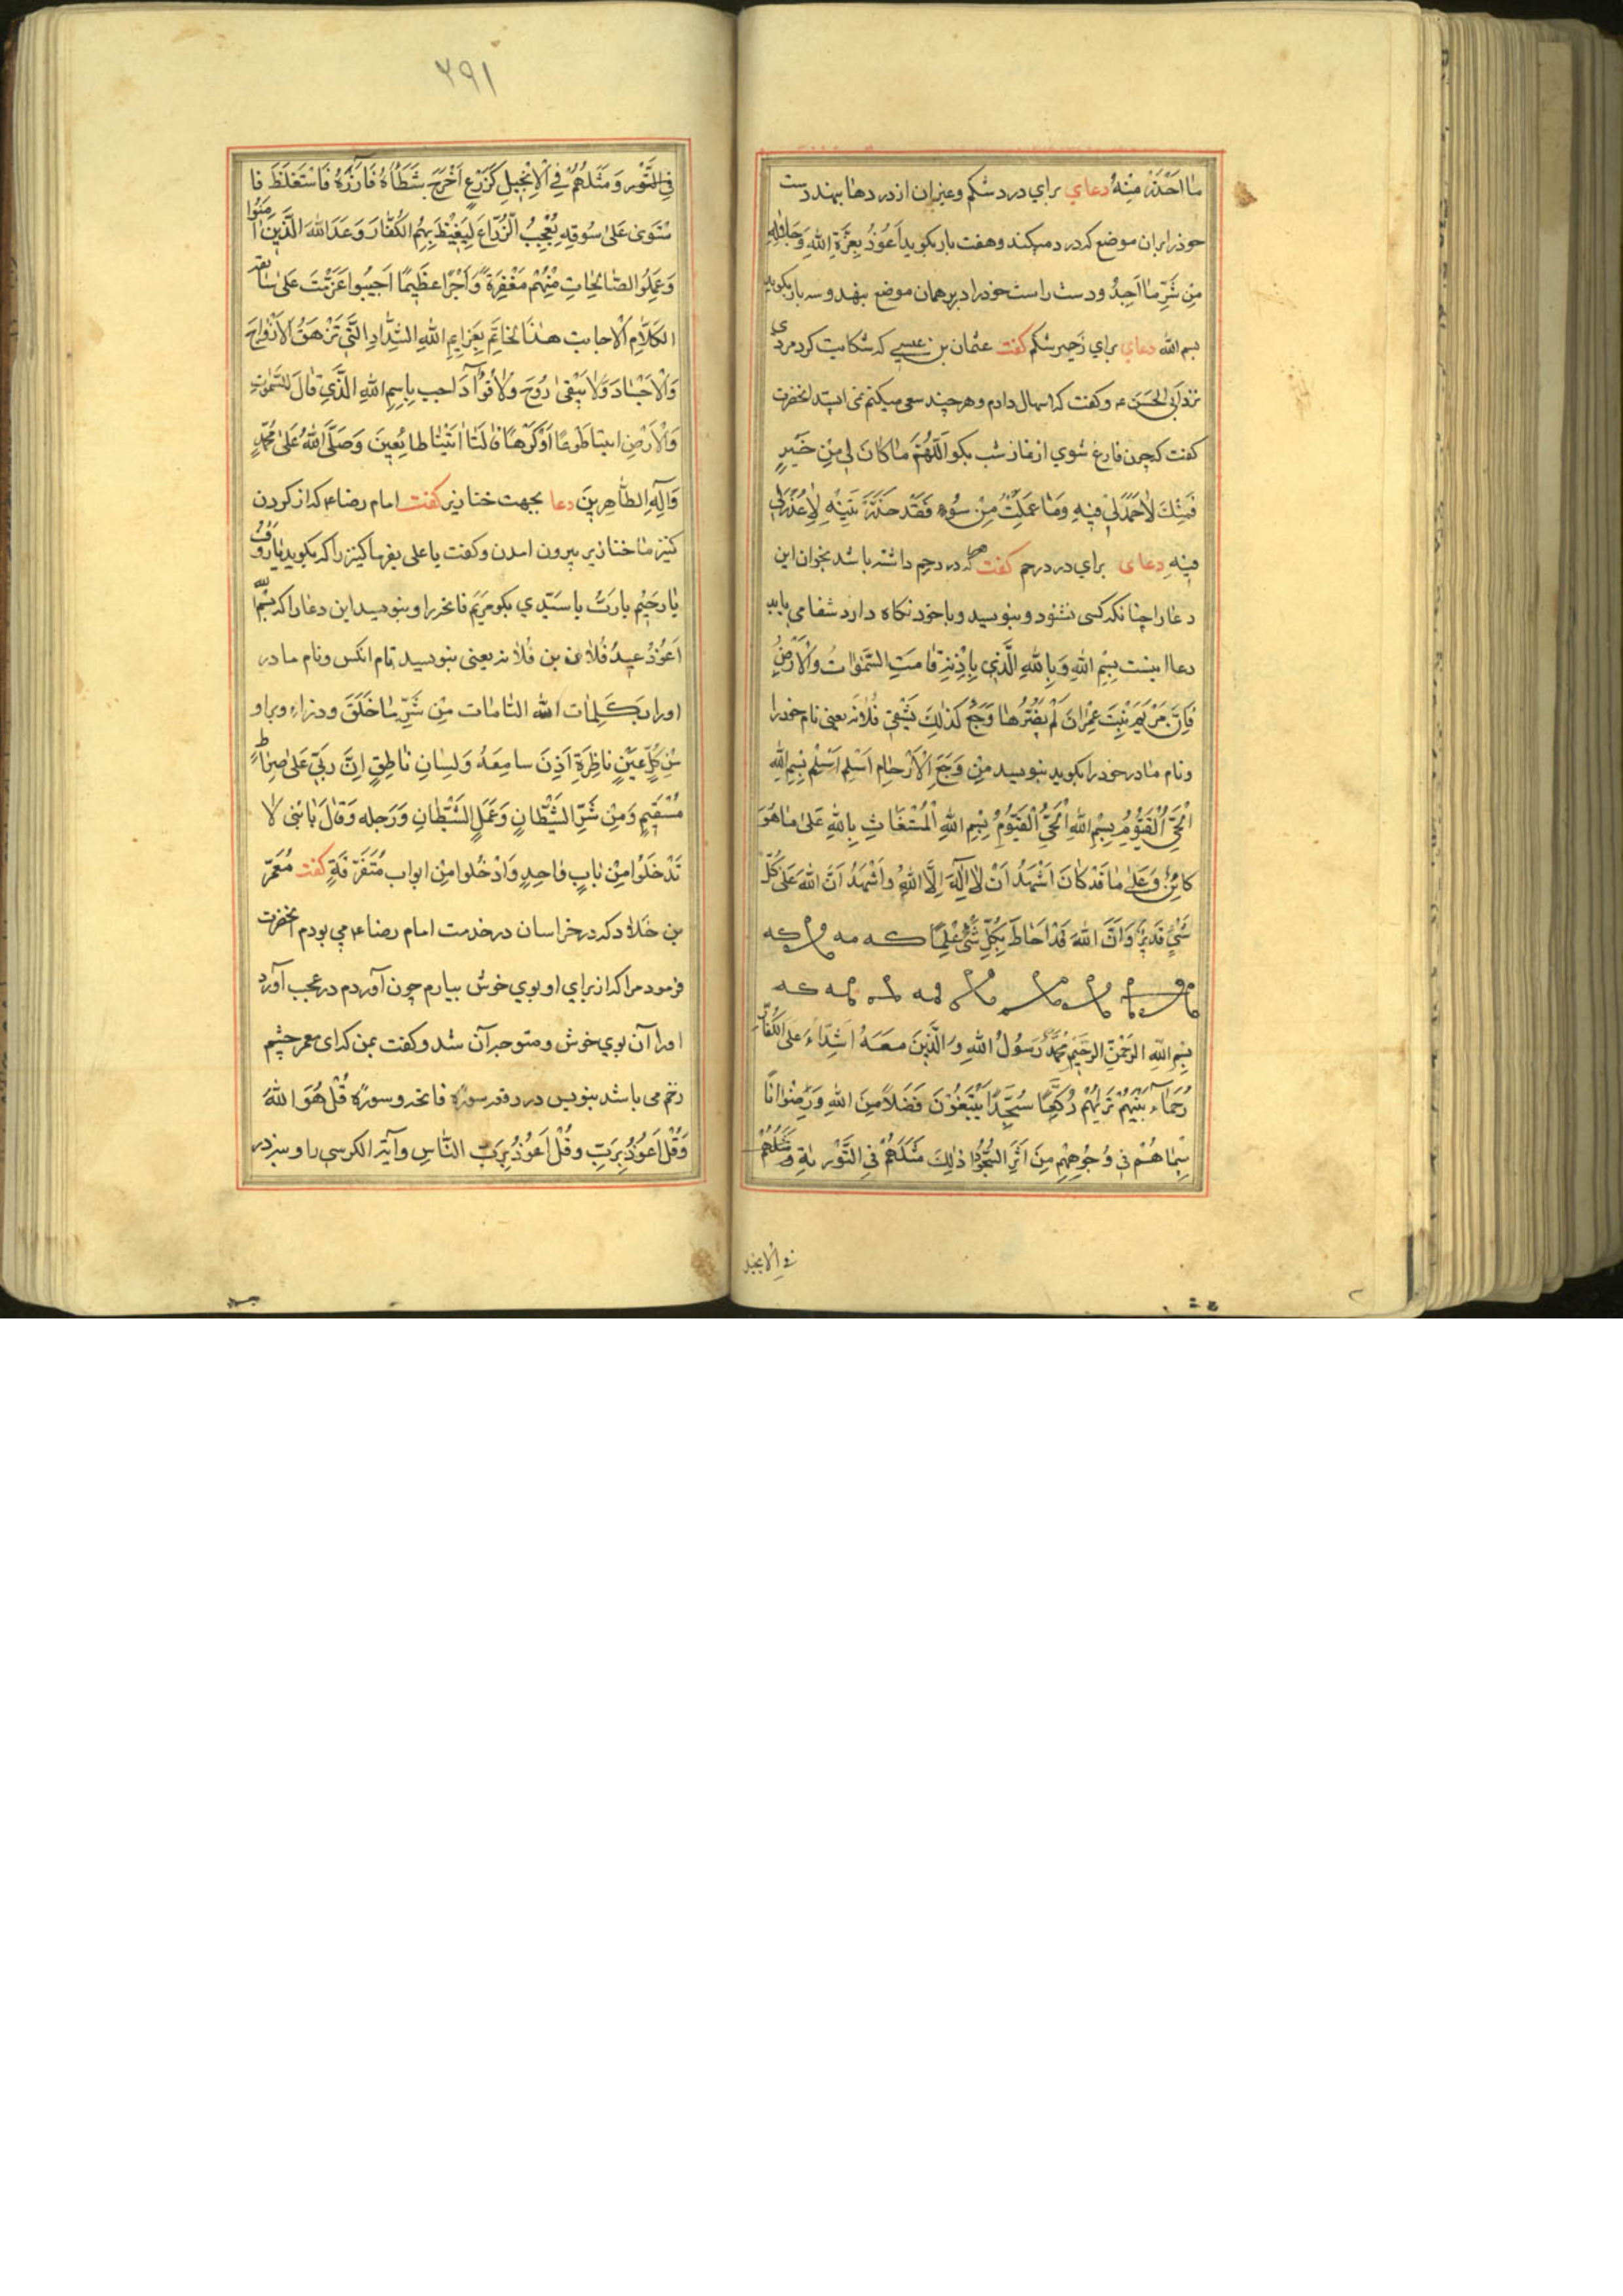 ما احذر منه دعای برای درد شکم و غیر ان از دردها بهند دست
خود را بران موضع که درد میکند و هفت بار بکوید اعوذ بعزة الله و جلاله
من شر ما اجد و دست راست خود را دبر همان موضع بنهد و سه بار بکوید
بسم الله دعای برای زحیر شکم کفت عثمان بن عیسی که شکایت کرد مردی
نزد ابی الحسن ع و کفت که اسهال دادم و هر چند سعی میکنم نمی ایستد انحضرت
کفت که چون فارغ شوی از نماز شب بکو اللَّهُمَّ مَا كَانَ لِي مِنْ خَيْرٍ
فَمِنْكَ لَا حَمْدَ لِي فِيهِ وَمَا عَمِلْتُ مِنْ سُوءٍ فَقَدْ حَذَّرْتَنِيهِ لَا عُذْرَ لِي
فِيهِ دعای برای درد رحم کفت که درد رحم داشته باشد بخوان این
دعا را چنانکه کسی نشنود و بنویسید و با خود نکاه دارد شفا می یابد
دعا اینست بِسْمِ اللهِ وَبِاللهِ الَّذِي بِاِذْنِهِ قَامَتِ السَّمٰوَاتُ وَالْاَرْضُ
فَاِنَّ مَرْيَمَ بِنْتَ عِمْرَانَ لَمْ يَضُرَّهَا وَجَعٌ كَذَلِكَ يَشْفِي فُلَانَه یعنی نام خود را
و نام مادر خود را بکوید بنویسید مِنْ وَجَعِ الْاَرْحَامِ اَسْلِمْ اَسْلِمْ بِسْمِ اللهِ
الْحَيُّ الْقَيُّومُ بِسْمِ اللهِ الْحَيُّ الْقَيُّومُ بِسْمِ اللهِ الْمُسْتَغَاثِ بِاللهِ عَلَى مَا هُوَ
كَائِنٌ وَعَلَى مَا قَدْ كَانَ اَشْهَدُ اَنْ لَا اِلَهَ اِلَّا اللهُ وَاَشْهَدُ اَنَّ اللهَ عَلَى كُلِّ
شَيْءٍ قَدِيرٌ وَاَنَّ اللهَ قَدْ اَحَاطَ بِكُلِّ شَيْءٍ عِلْمًا
بِسْمِ اللهِ الرَّحْمٰنِ الرَّحِيمِ مُحَمَّدٌ رَسُولُ اللهِ وَالَّذِينَ مَعَهُ اَشِدَّاءُ عَلَى الْكُفَّارِ
رُحَمَاءُ بَيْنَهُمْ تَرَاهُمْ رُكَّعًا سُجَّدًا يَبْتَغُونَ فَضْلًا مِنَ اللهِ وَرِضْوَانًا
سِيمَاهُمْ فِي وُجُوهِهِمْ مِنْ اَثَرِ السُّجُودِ ذٰلِكَ مَثَلُهُمْ فِي التَّوْرٰيةِ وَمَثَلُهُمْ
فی الانجیل
۲۹۱
فِي التَّوْر وَمَثَلُهُمْ فِي الْاِنْجِيلِ كَزَرْعٍ اَخْرَجَ شَطْأَهُ فَآزَرَهُ فَاسْتَغْلَظَ فَا
سْتَوَى عَلَى سُوقِهِ يُعْجِبُ الزُّرَّاعَ لِيَغِيظَ بِهِمُ الْكُفَّارَ وَعَدَ اللهُ الَّذِينَ اٰمَنُوا
وَعَمِلُوا الصَّالِحَاتِ مِنْهُمْ مَغْفِرَةً وَاَجْرًا عَظِيمًا اَجِيبُوا عَزَمْتُ عَلَى
الكلام هذا الخاتم بِعَزَايِمِ اللهِ الشِّدَادِ الَّتِي تَزْهَقُ الْاَرْوَاحَ
وَالْاَجْسَادَ وَلَا يَبْقَى رُوحَ وَلَا فُؤَآدَ اجب بِاسْمِ اللهِ الَّذِي قَالَ لِلسَّمٰوَاتِ
وَالْاَرْضِ ائتيا طَوْعًا اَوْ كَرْهًا قَالَتَا اَتَيْنَا طَائِعِينَ وَصَلَّى اللهُ عَلَى مُحَمَّدٍ
وَآلِهِ الطَّاهِرِينَ دعا بجهت خنازیر کفت امام رضا ع که از کردن
کنیز ما خنازیر بیرون امدن و کفت یا علی بفرما کنیز را که بکوید یَا رَؤُفُ
يَا رَحِيمُ يا رَبُّ يا سَيِّدِي بکو مریم فاتحه را و بنویسید این دعا را که بِسْمِ
اَعُوذُ عبد فلان بن فلانه یعنی بنویسید نام انکس و نام مادر
او را بکَلِمَات الله التامات مِنْ شَرِّ مَا خَلَقَ وذراء وبراو
مِنْ كُلِّ عَيْنٍ نَاظِرَةٍ اَذِنَ سامِعَهُ وَلِسَانِ نَاطِقٍ اِنَّ رَبِّي عَلَى صِرَاطٍ
مُسْتَقِيمٍ وَمِنْ شَرِّ الشَّيْطَانِ وَعَمَلِ الشَّيْطَانِ وَرَجِله وَقَالَ يَا بَنِي لَا
تَدْخُلُوا مِنْ بَابٍ وَاحِدٍ وَادْخُلُوا مِنْ ابواب مُتَفَرِّقَةٍ کفت مُعَمَّر
بن خَلاد که در خراسان در خدمت امام رضا ع می بودم انحضرت
فرمود مرا که از برای او بوی خوش بیارم چون آوردم در عجب آورد
او را آن بوی خوش و متوجه آن شد و کفت بمن که ای معمر چشم
زخم می باشد بنویس در رقعه سوره فاتحه و سوره قُلْ هُوَ اللهُ
وَقُلْ اَعُوذُ بِرَبِّ وقُلْ اَعُوذُ بِرَبِّ النَّاسِ و آیة الکرسی را و بند در